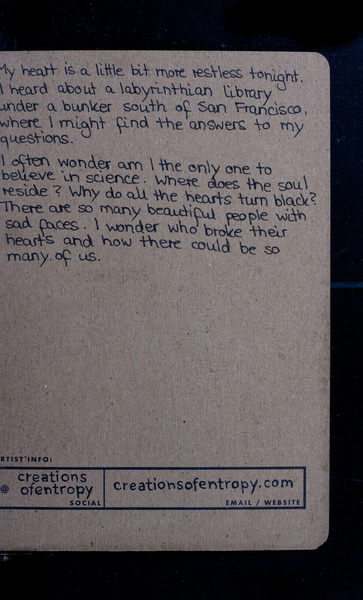 My heart is a little bit more restless tonight.
I heard about a labyrinthian library
under a bunker south of San Francisco,
where I might find the answers to my
questions.
I often wonder am I the only one to
believe in science. Where does the soul
reside? Why do all the hearts turn black?
There are so many beautiful people with
sad faces. I wonder who broke their
hearts and how there could be so
many of us.
RTIST INFO:
creations
@ ofentropy
SOCIAL
creationsofentropy.com
EMAIL / WEBSITE